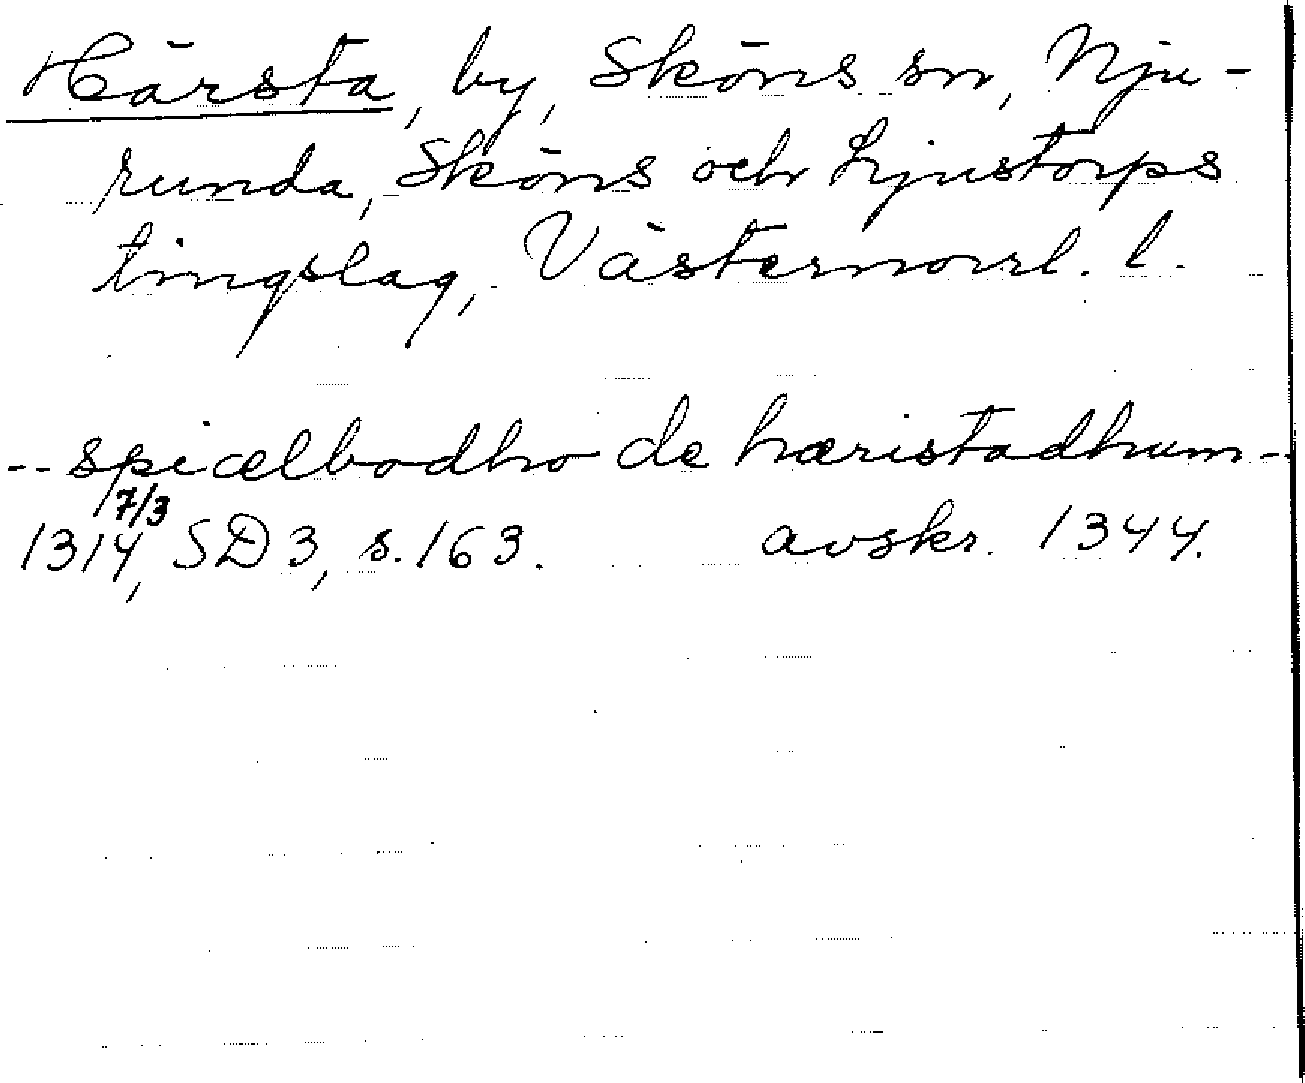 Härsta, by, Sköns sn, Nju-
runda, Sköns och Ljustorps
tingslag, Västernorrl. l.
-- spiælbodho de hæristadhum --
1314 7/3, SD 3, s. 163. avskr. 1344.